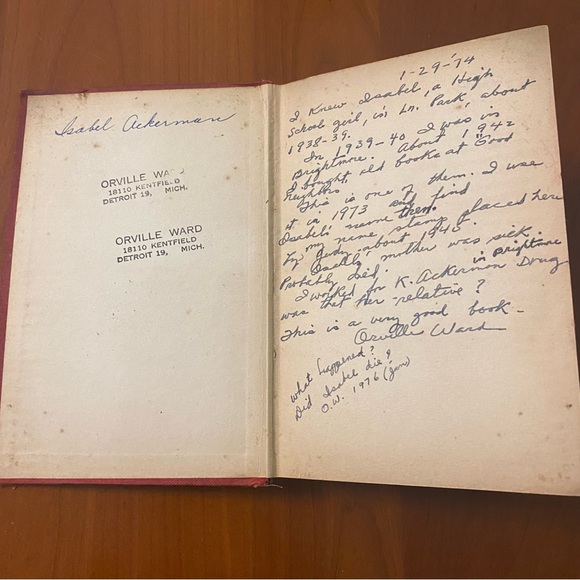 Isabel Ackerman
ORVILLE WARD
18110 KENTFIELD
DETROIT 19, MICH.
ORVILLE WARD
18110 KENTFIELD
DETROIT 19, MICH.
1-29-'74
I Knew Isabel, a High
School girl, in Ln. Park about
1938-39.
In 1939-40 I was in
Brightmore. About 1942
I bought old books at "Good
Neighbors".
This is one of them. I
at it in 1973 and find
Isabels' name then.
my name stamp placed here
by about 1945.
mother was sick.
Probably died. in Brightmore
I worked for K. Ackerman Drug
was that her relative?
This is a very good book -
Orville Ward
what happened?
Did Isabel die?
O.W. 1976 (Jan)